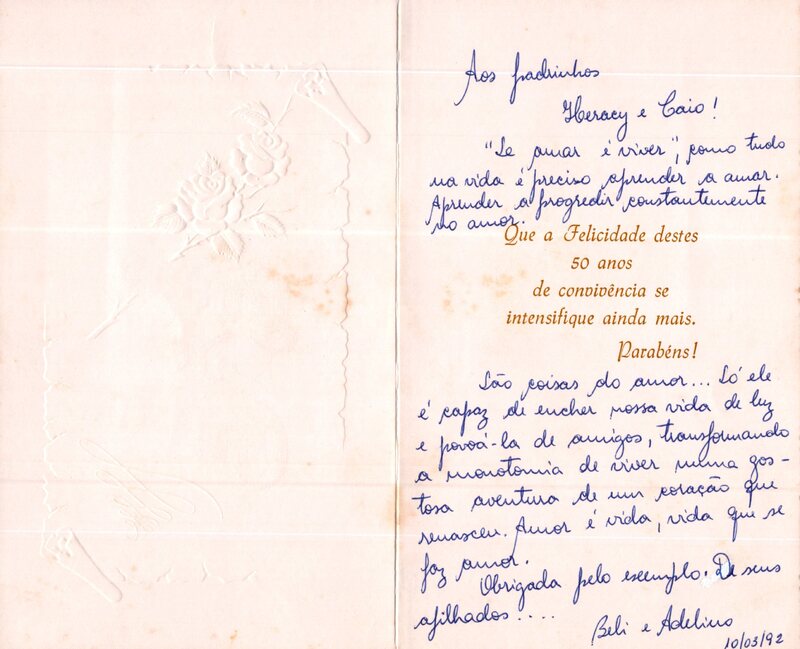 Aos padrinhos
Iberacy e Caio!
"Se amar é viver", como tudo
na vida é preciso aprender a amar.
Aprender a progredir constantemente
no amor.
Que a Felicidade destes
50 anos
de convivência se
intensifique ainda mais.
Parabéns!
São coisas do amor... Só ele
é capaz de encher nossa vida de luz
e povoá-la de amigos, transformando
a monotomia de viver numa gos-
tosa aventura de um coração que
renasceu. Amor é vida, vida que se
faz amor.
Obrigada pelo exemplo. De seus
afilhados....
Beli e Adelino
10/03/92